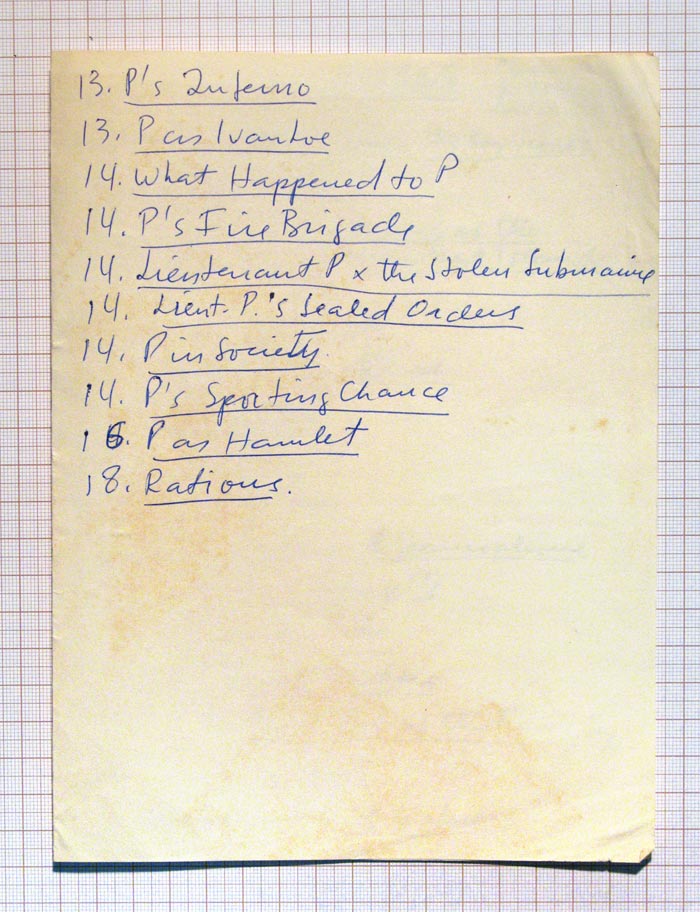 13. P's Inferno
13. P as Ivanhoe
14. What Happened to P
14. P's Fire Brigade
14. Lieutenant P & the Stolen Submarine
14. Lieut. P.'s Sealed Orders
14. P in Society.
14. P's Sporting Chance
16. P as Hamlet
18. Rations.